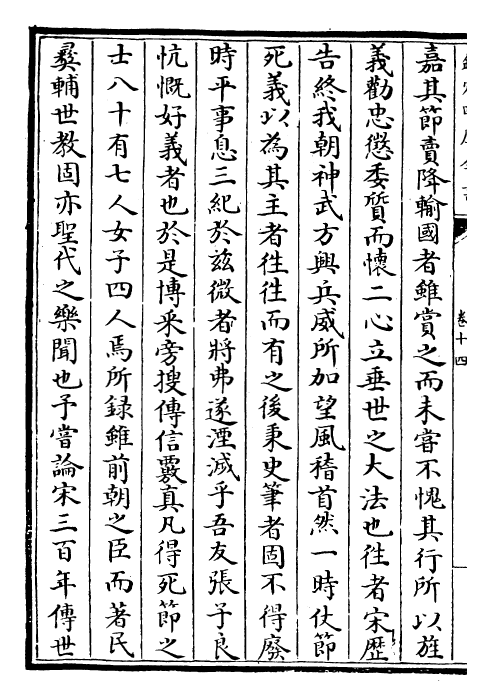 卷十四
嘉其節賣降輸國者雖賞之而未嘗不愧其行所以旌
義勸忠懲委質而懷二心立垂世之大法也徃者宋歴
告終我朝神武方興兵威所加望風稽首然一時仗節
死義以為其主者徃徃而有之後秉史筆者固不得廢
時平事息三紀於兹微者將弗遂湮滅乎吾友張子良
忼慨好義者也於是博采旁搜傳信覈真凡得死節之
士八十有七人女子四人焉所録雖前朝之臣而著民
彛輔世教固亦聖代之樂聞也予嘗論宋三百年傳世